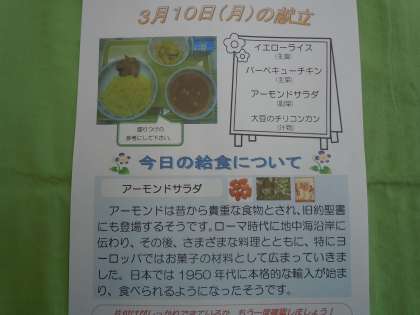 3月10日(月)の献立
イエローライス
(主食)
バーベキューチキン
(主菜)
アーモンドサラダ
(副菜)
大豆のチリコンカン
(汁物)
盛りつけの
参考にして下さい。
今日の給食について
アーモンドサラダ
アーモンドは昔から貴重な食物とされ、旧約聖書
にも登場するそうです。ローマ時代に地中海沿岸に
伝わり、その後、さまざまな料理とともに、特にヨー
ロッパではお菓子の材料として広まっていき
ました。日本では1950年代に本格的な輸入が始ま
り、食べられるようになったそうです。
もう一度確認しましょう!